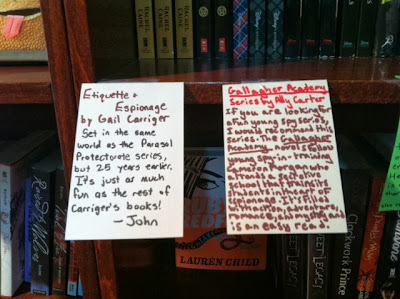 RACHEL CAINE
RACHEL CAINE
Disney
Disney
Etiquette &
Espionage
by Gail Carriger
Set in the same
world as the Parasol
Protectorate series,
but 25 years earlier.
It's just as much
fun as the rest of
Carriger's books!
— John
Gallagher Academy
Series by Ally Carter
If you are looking for
a fun young spy series,
I would recommend this
series. The Gallagher
Academy novels follow
young spy-in-training
Cameron Morgan who
attends a
school that trains its
students in the art of
espionage. It's filled
with action, adventure,
romance, and mystery and
is an easy read.
LAUREN CHILD
Clockwork Prince